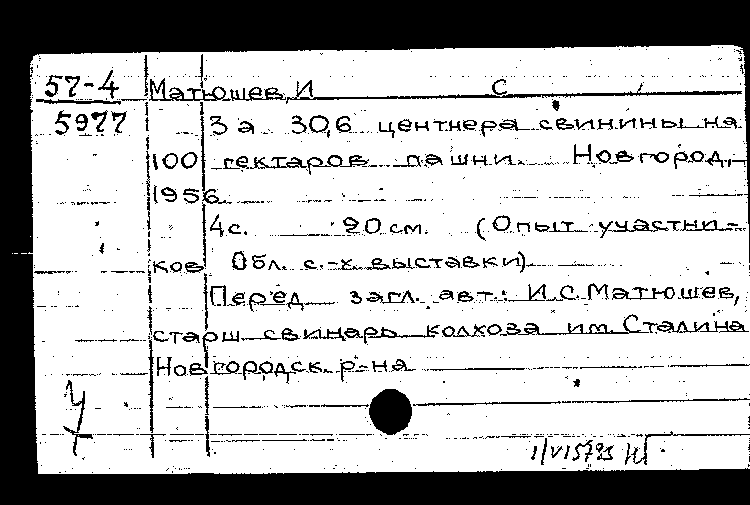 57-4 Матюшев, И С
5977 За 30,6 центнера свинины на
100 гектаров пашни. Новгород,
1956.
4с. 20см. (Опыт участни-
ков Обл. с.-х. выставки)
Перед загл. авт.: И.С. Матюшев,
старш. свинарь колхоза им. Сталина
Новгородск. р-на